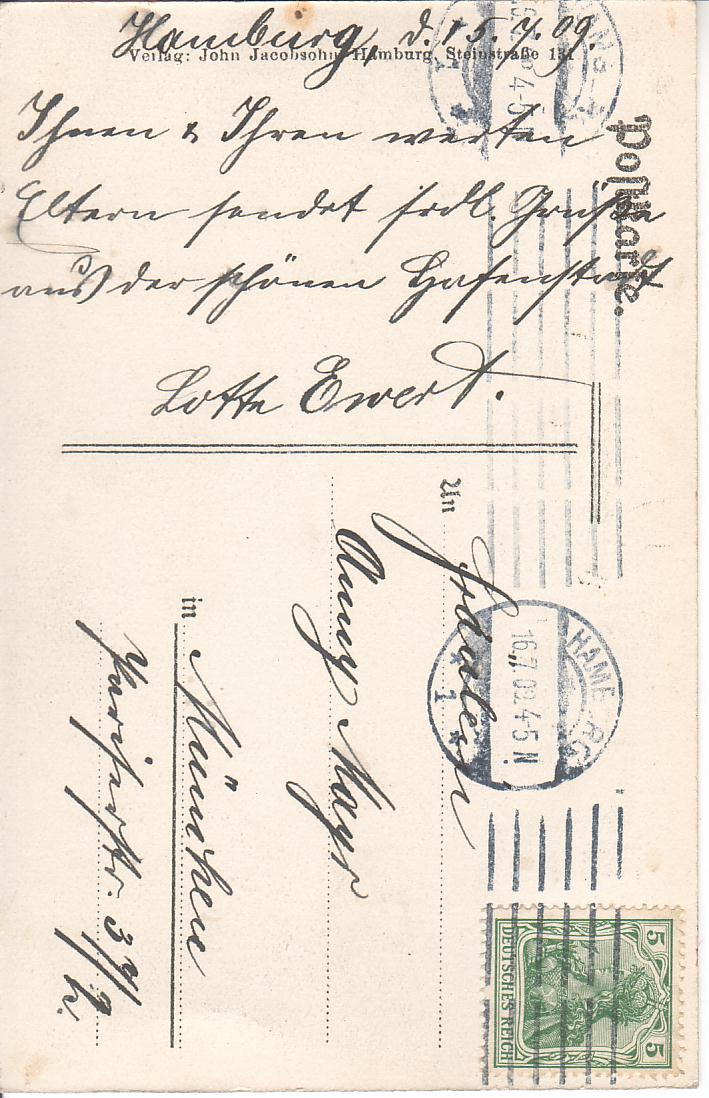 Hamburg, d. 15.7.09.
Verlag: John Jacobsohn, Hamburg, Steinstraße 131
Ihnen & Ihren werten
Eltern sendet frdl. Grüße
aus der schönen Hafenstadt
Lotte Ewert.
Postkarte.
An
Fräulein
Anny Mayr
in München
Pariserstr. 37/2.
HAMBURG
16.7.09. 4-5 N
* 1 *
5 5
DEUTSCHES REICH